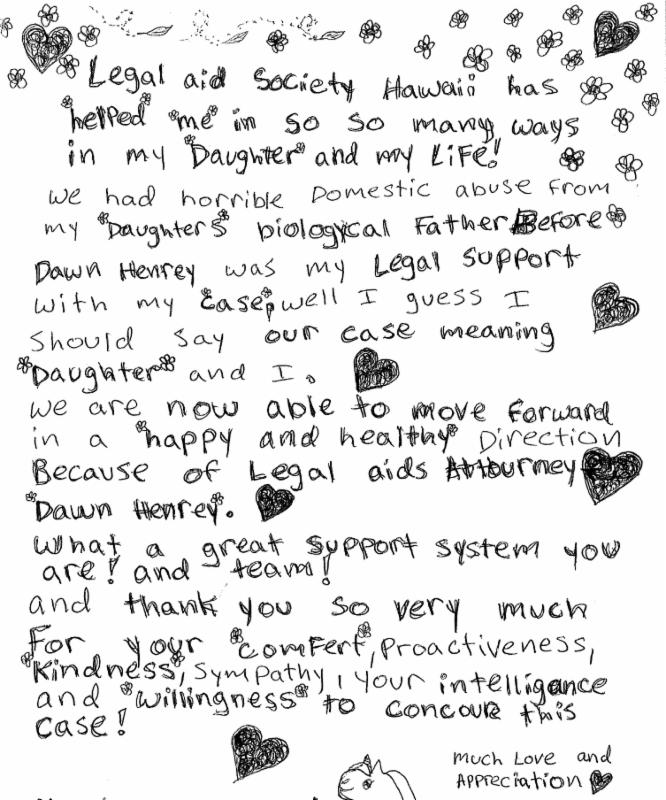 Legal aid Society Hawaii has
helped me in so so many ways
in my Daughter and my LiFe!
we had horrible Domestic abuse From
my Daughters biological Father Before
Dawn Henrey was my Legal support
with my case, well I guess I
should say our case meaning
Daughter and I.
we are now able to move Forward
in a happy and healthy Direction
Because of Legal aids Attourney
Dawn Henrey.
What a great support system you
are! and team!
and thank you so very much
For your comfert, Proactiveness,
Kindness, Sympathy, your intelligance
and willingness to concour this
case!
much Love and
Appreciation